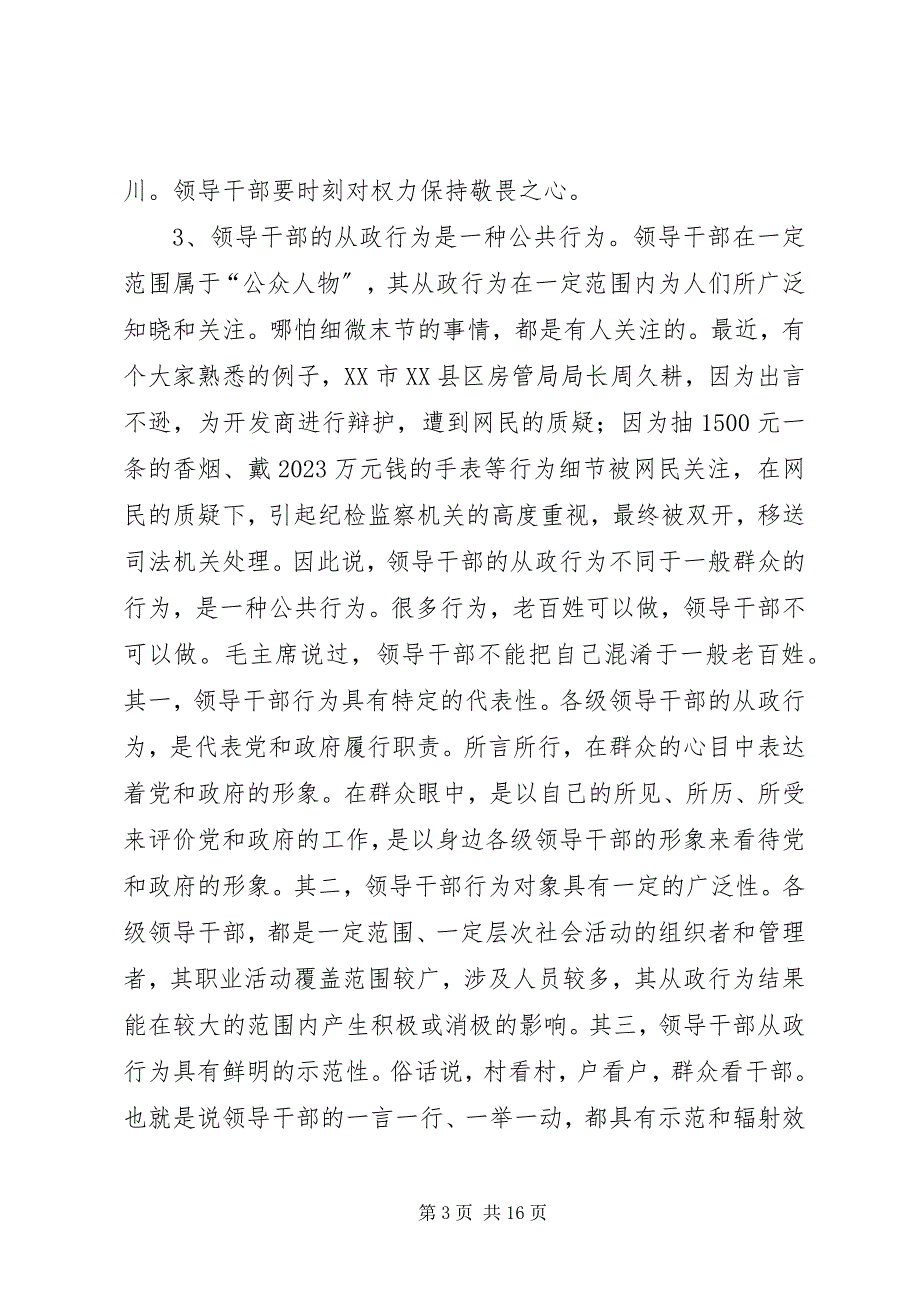 川。领导干部要时刻对权力保持敬畏之心。
3、领导干部的从政行为是一种公共行为。领导干部在一定
范围属于“公众人物〞，其从政行为在一定范围内为人们所广泛
知晓和关注。哪怕细微末节的事情，都是有人关注的。最近，有
个大家熟悉的例子，XX 市 XX 县区房管局局长周久耕，因为出言
不逊，为开发商进行辩护，遭到网民的质疑；因为抽 1500 元一
条的香烟、戴 2023 万元钱的手表等行为细节被网民关注，在网
民的质疑下，引起纪检监察机关的高度重视，最终被双开，移送
司法机关处理。因此说，领导干部的从政行为不同于一般群众的
行为，是一种公共行为。很多行为，老百姓可以做，领导干部不
可以做。毛主席说过，领导干部不能把自己混淆于一般老百姓。
其一，领导干部行为具有特定的代表性。各级领导干部的从政行
为，是代表党和政府履行职责。所言所行，在群众的心目中表达
着党和政府的形象。在群众眼中，是以自己的所见、所历、所受
来评价党和政府的工作，是以身边各级领导干部的形象来看待党
和政府的形象。其二，领导干部行为对象具有一定的广泛性。各
级领导干部，都是一定范围、一定层次社会活动的组织者和管理
者，其职业活动覆盖范围较广，涉及人员较多，其从政行为结果
能在较大的范围内产生积极或消极的影响。其三，领导干部从政
行为具有鲜明的示范性。俗话说，村看村，户看户，群众看干部。
也就是说领导干部的一言一行、一举一动，都具有示范和辐射效
第 3 页 共 16 页